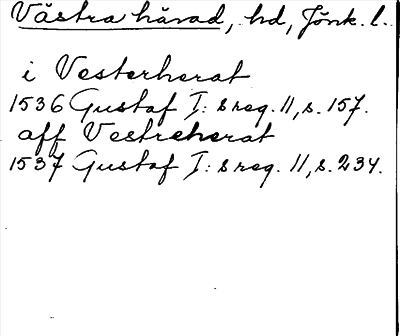 Västra härad, hd, Jönk. l.
i Vesterherat
1536 Gustaf I:s reg. 11, s. 157.
aff Vestreherat
1537 Gustaf I:s reg. 11, s. 234.